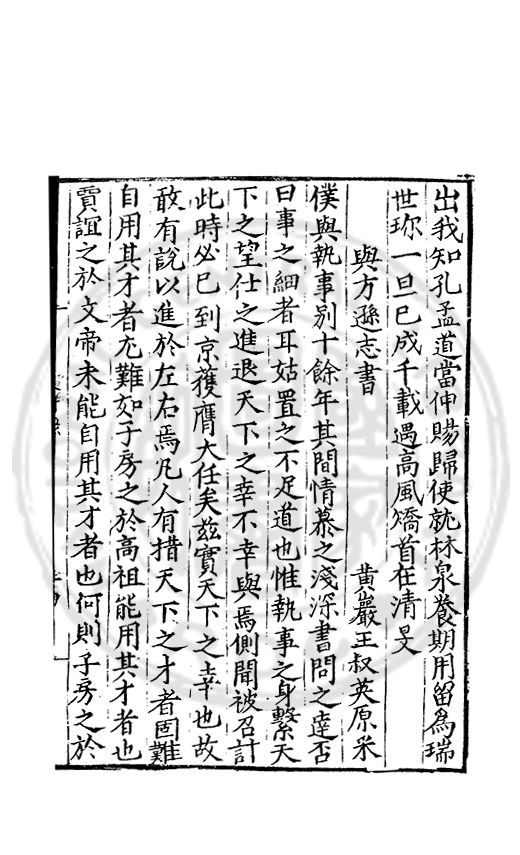 出我知孔孟道當伸賜歸使就林泉養期用留為瑞
世珎一旦已成千載遇高風矯首在清旻
與方遜志書
黃巖王叔英原采
僕與執事別十餘年其間情慕之淺深書問之達否
曰事之細者耳姑置之不足道也惟執事之身繫天
下之望仕之進退天下之幸不幸與焉側聞被召計
此時必已到京獲膺大任矣茲實天下之幸也故
敢有說以進於左右焉凡人有措天下之才者固難
自用其才者尤難如子房之於高祖能用其才者也
賈誼之於文帝未能自用其才者也何則子房之於